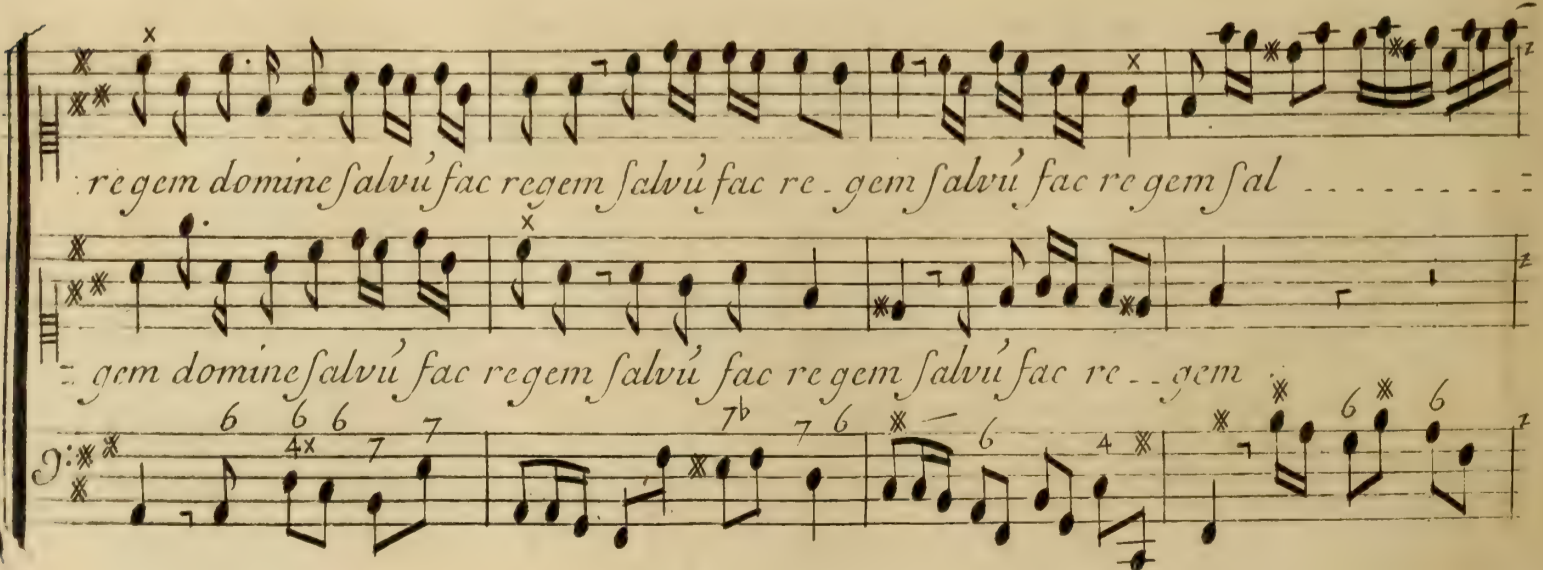 regem domine salvú fac regem salvú fac re - gem salvú fac regem sal - - - - - - - - =
= gem domine salvú fac regem salvú fac regem salvú fac re - - gem
6 6 6 7 7 7b 7 6 6 4 6 6
4x